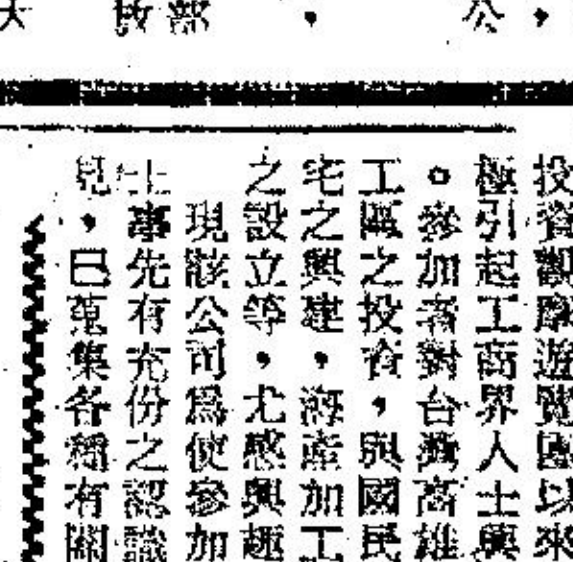 公，
，
部
投資觀摩遊覽團以來
極引起工商界人士興
。參加者對台灣高雄
工區之投資，與國民
宅之興建，海產加工
之設立等，尤感興趣
現該公司爲使參加
士事先有充份之認識
見，已蒐集各種有關